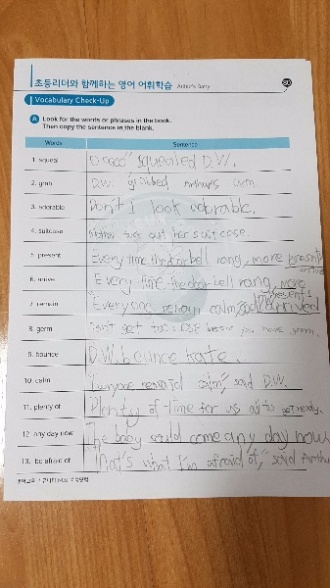 초등리더와 함께하는 영어 어휘학습 Arthur's Baby
Vocabulary Check-Up
A Look for the words or phrases in the book.
Then copy the sentence in the blank.
Words Sentence
1. squeal squealed D.W.
2. grab D.W. grabbed Arthur's arm.
3. adorable Don't I look adorable.
4. suitcase Mother took out her suitcase.
5. present Every time the doorbell rang, more presents arrived
6. arrive Every time the doorbell rang, more presents arrived
7. remain Everyone remain calm,
8. germ Don't get too close you have germ.
9. bounce D.W. bounce Kate.
10. calm Everyone calm," said D.W.
11. plenty of Plenty of time for us all to get ready.
12. any day now The baby could come any day now
13. be afraid of That's what I'm afraid of," said Arthur